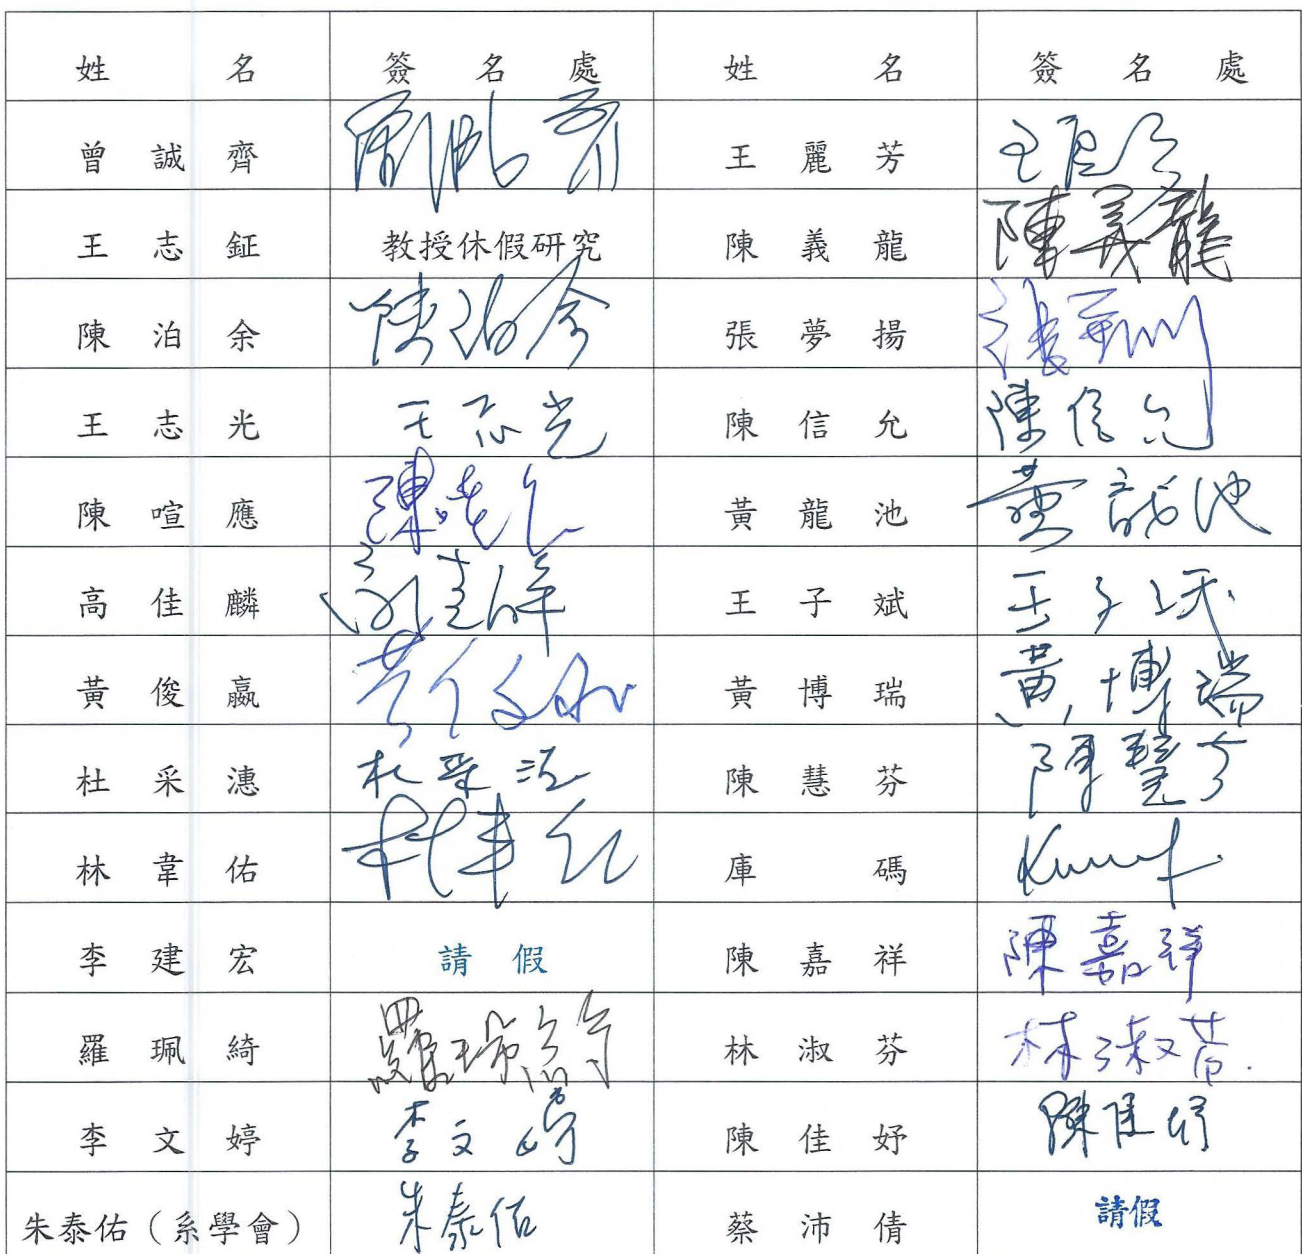 姓名 簽名處 姓名 簽名處
曾誠齊 王麗芳
王志鉦 教授休假研究 陳義龍 陳義龍
陳泊余 陳泊余 張夢揚
王志光 王志光 陳信允 陳信允
陳喧應 黃龍池
高佳麟 王子斌 王子斌
黃俊嬴 黃博瑞 黃博瑞
杜采潓 陳慧芬 陳慧芬
林韋佑 庫碼
李建宏 請假 陳嘉祥 陳嘉祥
羅珮綺 林淑芬 林淑芬
李文婷 李文婷 陳佳妤 陳佳妤
朱泰佑（系學會） 朱泰佑 蔡沛倩 請假